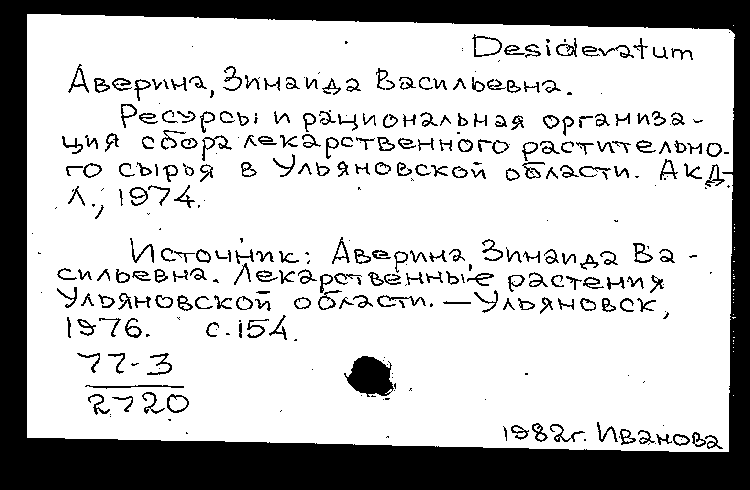 Desideratum
Аверина, Зинаида Васильевна.
Ресурсы и рациональная организа-
ция сбора лекарственного растительно-
го сырья в Ульяновской области. АКД-
Л., 1974.
Источник: Аверина, Зинаида Ва-
сильевна. Лекарственные растения
Ульяновской области. — Ульяновск,
1976. с. 154.
77-3
2720
1982г. Иванова